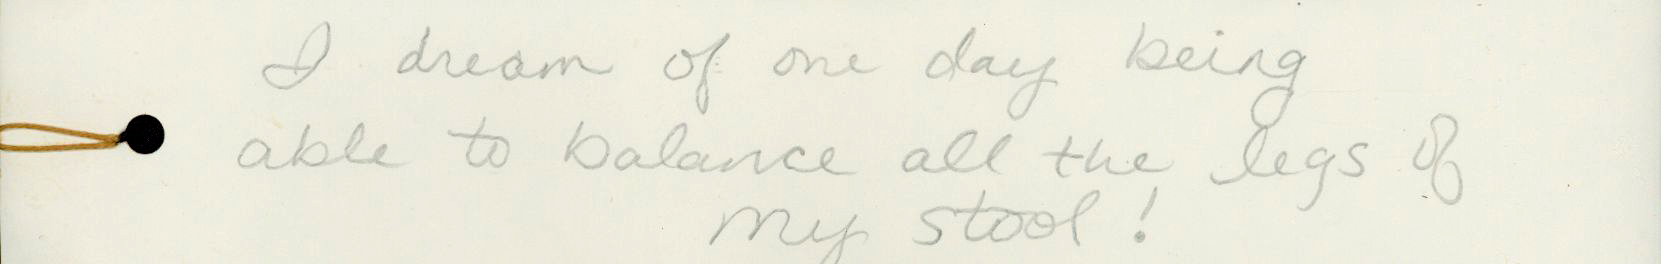 I dream of one day being
able to balance all the legs of
my stool!